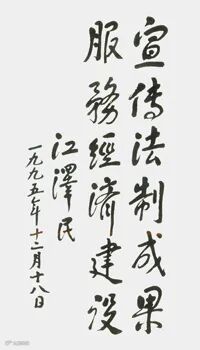 宣传法制成果
服務經濟建设
江澤民
一九九五年十二月十八日